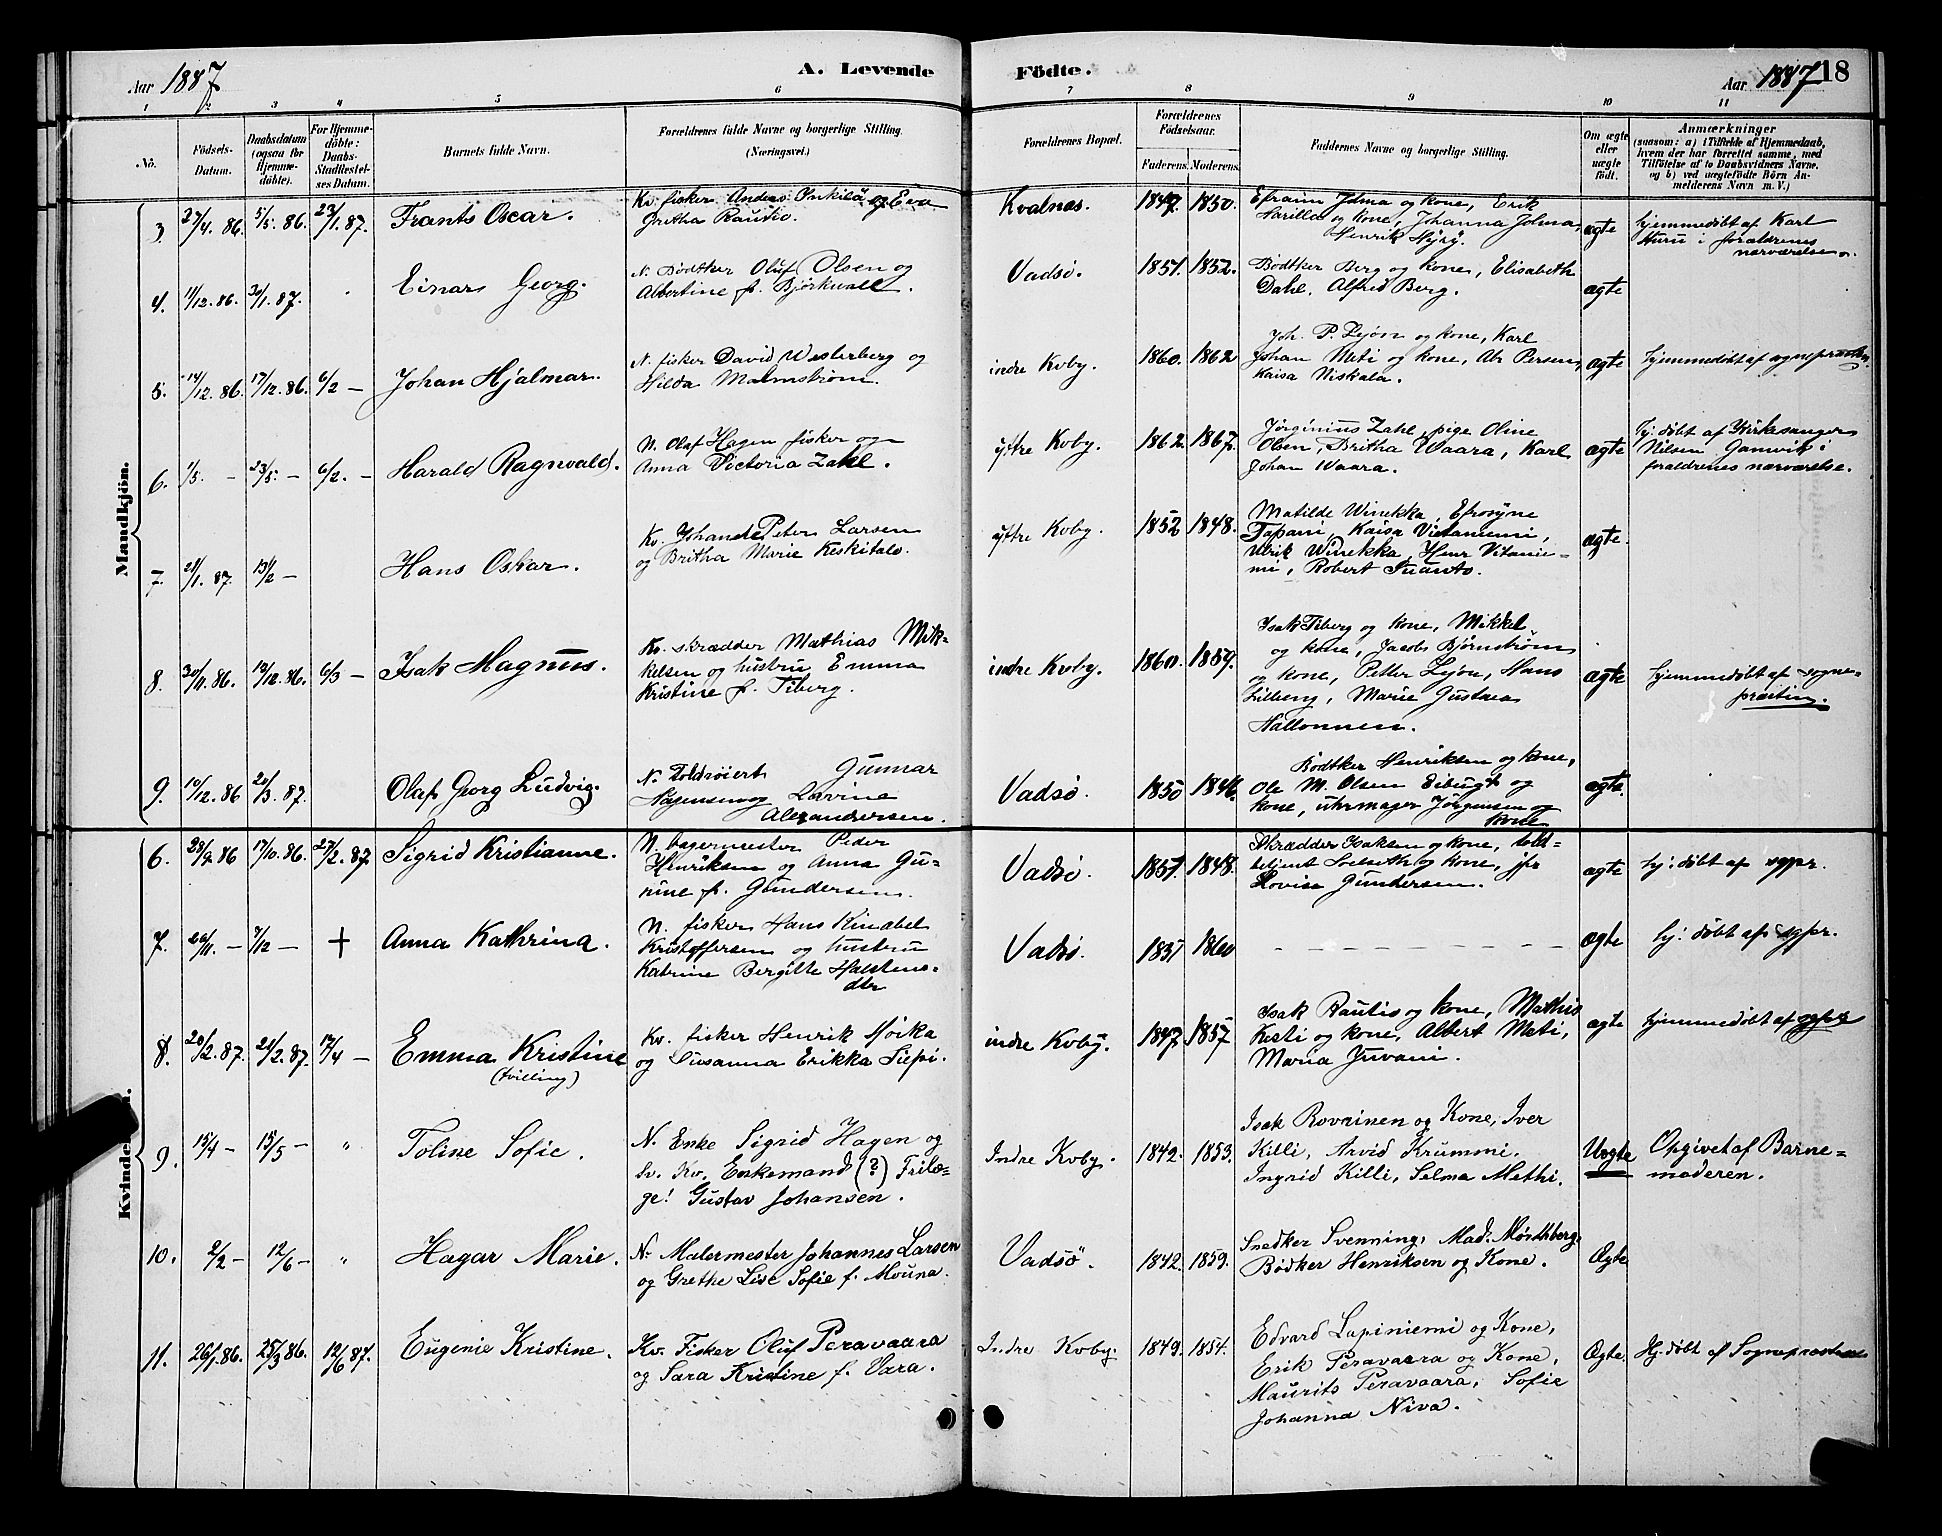 Aar 1887
A. Levende
Födte.
Aar 1887 18
1 2 3 4 5 6 7 8 9 10 11
No.
Födsels-Datum.
Daabsdatum (ogsaa for Hjemme-döbte).
For Hjemme-döbte: Daabs-Stadfæstel-ses Datum.
Barnets fulde Navn.
Forældrenes fulde Navne og borgerlige Stilling. (Næringsvei.)
Forældrenes Bopæl.
Forældrenes Födselsaar.
Faderens. Moderens.
Faddernes Navne og borgerlige Stilling.
Om ægte eller uægte födt.
Anmærkninger
(saasom: a) i Tilfælde af Hjemmedaab, hvem der har forrettet samme, med Tilföielse af to Daabsvidners Navne, og b) ved uægtefödte Börn An-melderens Navn m. V.)
Mandkjön.
3. 27/4. 86. 5/5. 86. 23/1. 87. Frants Oscar.
Kv. fisker Anders Inkila og Eva
Gretha Rautio.
Kvalnæs. 1847. 1850.
Efraim Jolma og kone, Erik
Harilla og kone, Johanna Jolma,
Henrik Hyry.
ægte
hjemmedöbt af Karl
Huru i forældrenes
nærværelse.
4. 11/12. 86. 30/1. 87. Einar Georg.
N. Bødtker Oluf Olsen og
Albertine f. Bjørkvall.
Vadsö. 1851. 1852.
Bödtker Berg og kone, Elisabeth
Dahl. Alfred Berg.
ægte
5. 14/12. 86. 17/12. 86. 6/2 – Johan Hjalmar.
N. fisker David Westerberg og
Hilda Malmstrøm.
indre Kvby. 1860. 1862
Joh. P. Lejon og kone, Karl
Johan Mati og kone, Ab. Persen,
Kaisa Niskala.
ægte
hjemmedöbt af sognepræsten.
6. 1/5. – 23/5. – 6/2. – Harald Ragnvald.
N. Olaf Hagen fisker og
Anna Victoria Zahl.
ytre Kvby. 1862. 1867.
Jörginius Zahl, pige Oline
Olsen, Britha Waara, Karl
Johan Waara.
ægte
hj. döbt af Kirkesanger
Nilsen Gamvik i
forældrenes nærværelse.
7. 21/1. 87. 13/2 – Hans Oskar.
Kv. Johan Peter Larsen
og Britha Marie Keskitalo.
ytre Kvby. 1852 1848.
Matilde Winekka, Efrosyne
Tapani, Kaisa Vietaniemi,
Ulrik Winekka, Henr Vitanie-
mi, Robert Suanto.
ægte.
8. 30/11. 86. 19/12. 86. 6/3 – Isak Magnus.
Kv. skrædder Mathias Mik-
kelsen og hustru Emma
Kristine f. Tiberg.
indre Kvby. 1860. 1859.
Isak Tiberg og kone, Mikkel
og kone, Jacobs Björnström
og kone, Petter Lejon, Hans
Lilberg, Marie Gustava
Hallonnen.
ægte
hjemmedöbt af sogne-
præsten.
9. 10/12. 86 20/3. 87. Olaf Georg Ludvig.
N. Toldroiert Gunnar
Hagensen og Lovine
Alexandersen.
Vadsö. 1850 1846.
Bödtker Henriksen og kone,
Ole M. Olsen Eibugt og
kone, uhrmager Jörgensen og
kone
ægte.
Kvinde
6. 23/9. 86 17/10. 86. 27/2. 87 Sigrid Kristianne.
N. bagermester Peder
Henriksen og Anna Gu-
rine f. Gundersen.
Vadsö. 1851. 1848.
Skrædder Isaksen og kone, told-
betjent Soelseth og kone, jfr
Lovise Gundersen.
ægte
hj. döbt af sgpr.
7. 20/11. – 7/12 – + Anna Kathrina.
N. fisker Hans Kinabel
Kristoffersen og hustru
Katrine Bergitte Halstens-
dtr
Vadsö. 1831 1860
ægte
hj. döbt af sgpr.
8. 20/2. 87. 21/2. 87. 17/4 – Emma Kristine
(tvilling)
Kv. fisker Henrik Moika
og Susanna Erikka Siepi.
indre Kvby. 1847 1857
Isak Rautio og kone, Mathis
Kesti og kone, Albert Mati,
Maria Juvani.
ægte
hjemmedöbt af sgpr
9. 15/4 – 15/5 – " Toline Sofie.
N. Enke Sigrid Hagen og
Sv. Kv. Enkemand (?) Frilæ-
ge! Gustav Johansen.
Indre Kvby. 1842. 1853.
Isak Rovainen og Kone, Iver
Killi, Arvid Krummi.
Ingrid Killi, Selma Mathi.
Uægte
Opgivet af Barne-
moderen.
10. 2/2 – 12/6 – " Hagar Marie.
N. Malermester Johannes Larsen
og Grethe Lise Sofie f. Mouna.
Vadsö. 1842. 1859.
Snedker Svenning, Mad. Mörthberg,
Bödker Henriksen og Kone.
Ægte
11. 26/1. 86. 25/3 86. 12/6 87. Eugenie Kristine.
Kv. Fisker Oluf Peravaara
og Sara Kristine f. Vara.
Indre Kvby. 1849. 1854.
Edvard Lapiniemi og Kone,
Erik Peravaara og Kone,
Maurits Peravaara, Sofie
Johanna Niva.
Ægte.
Hj. döbt af Sognepræsten